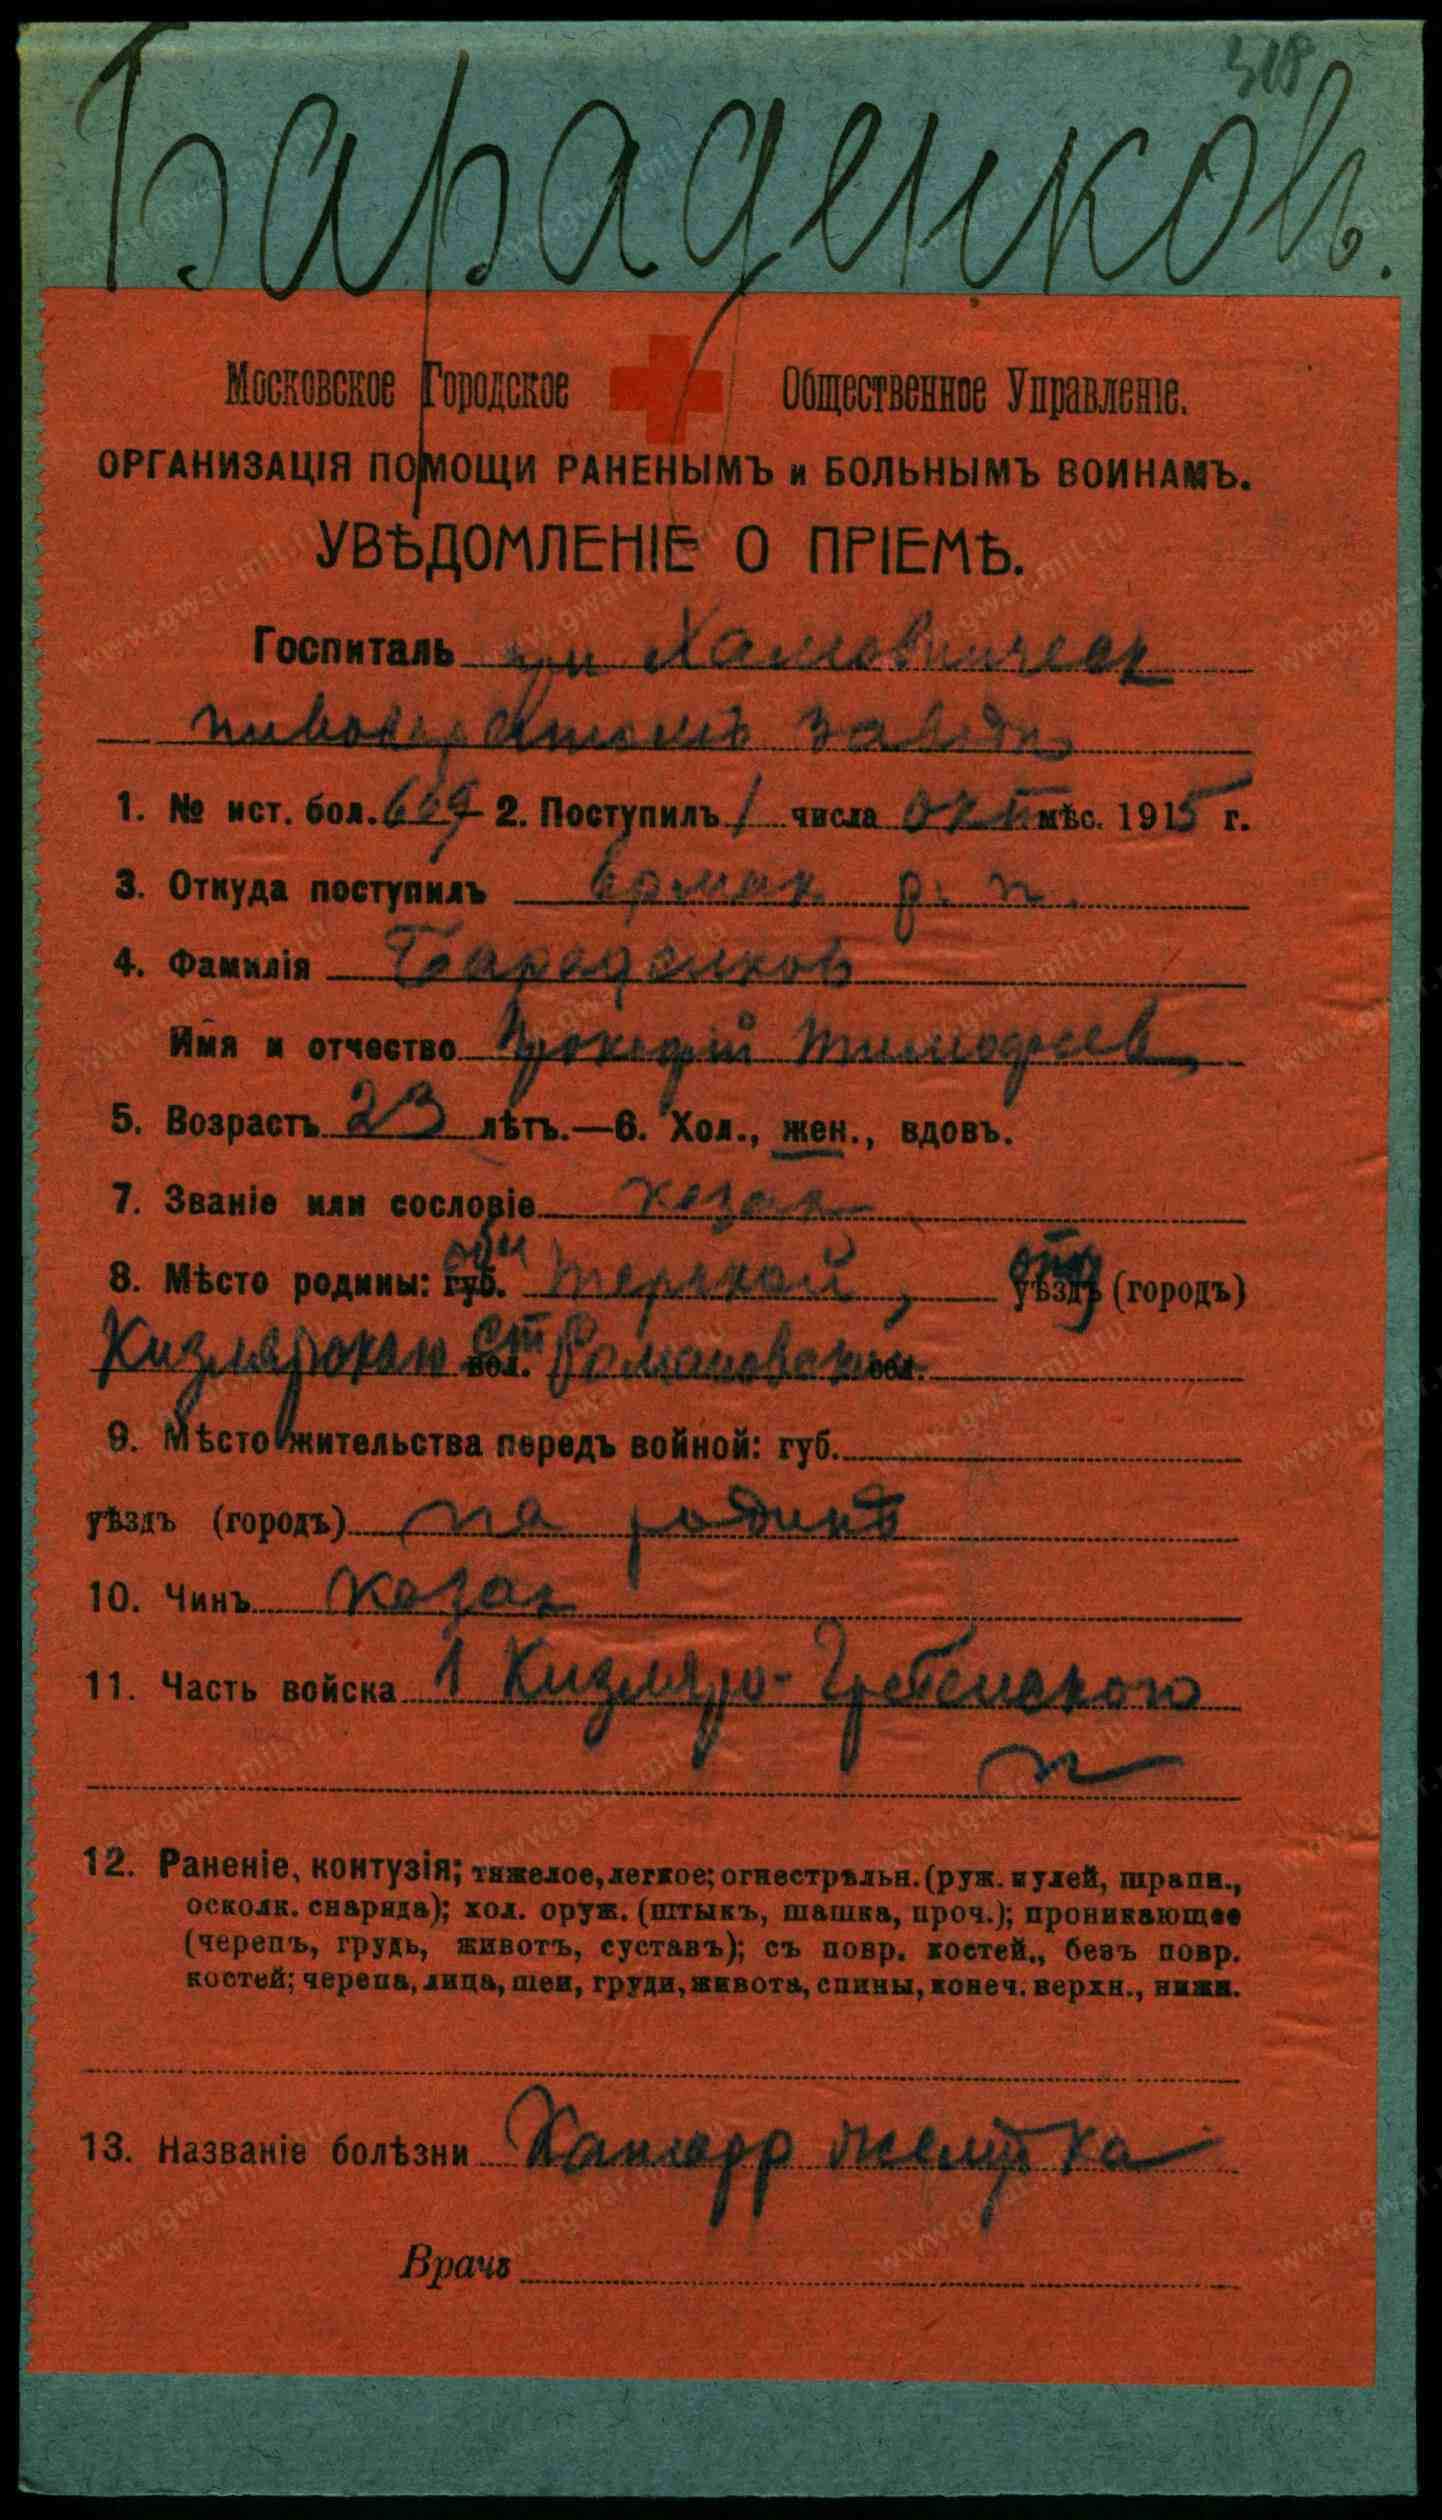 518
Бараденковъ.
Московское Городское Общественное Управленіе.
ОРГАНИЗАЦІЯ ПОМОЩИ РАНЕНЫМЪ и БОЛЬНЫМЪ ВОИНАМЪ.
УВѢДОМЛЕНІЕ О ПРІЕМѢ.
Госпиталь при Хамовническ
пивоваренномъ заводѣ
1. № ист. бол. 609 2. Поступилъ 1 числа окт мѣс. 1915 г.
3. Откуда поступилъ р. п.
4. Фамилія Бараденков
Имя и отчество Прокофій Тимофеев
5. Возрастъ 23 лѣтъ.—6. Хол., жен., вдовъ.
7. Званіе или сословіе козак
8. Мѣсто родины: губ. обл Терской, уѣздъ отд (городъ)
Кизлярокаго вол. ст Романовской сел.
9. Мѣсто жительства передъ войной: губ.
уѣздъ (городъ) на родинѣ
10. Чинъ козак
11. Часть войска 1 Кизляро-Гребенского
п
12. Раненіе, контузія; тяжелое, легкое; огнестрѣльн. (руж. пулей, шрапн.,
осколк. снаряда); хол. оруж. (штыкъ, шашка, проч.); проникающее
(черепъ, грудь, животъ, суставъ); съ повр. костей., безъ повр.
костей; черепа, лица, шеи, груди, живота, спины, конеч. верхн., нижн.
13. Названіе болѣзни Катарр желудка
Врачъ